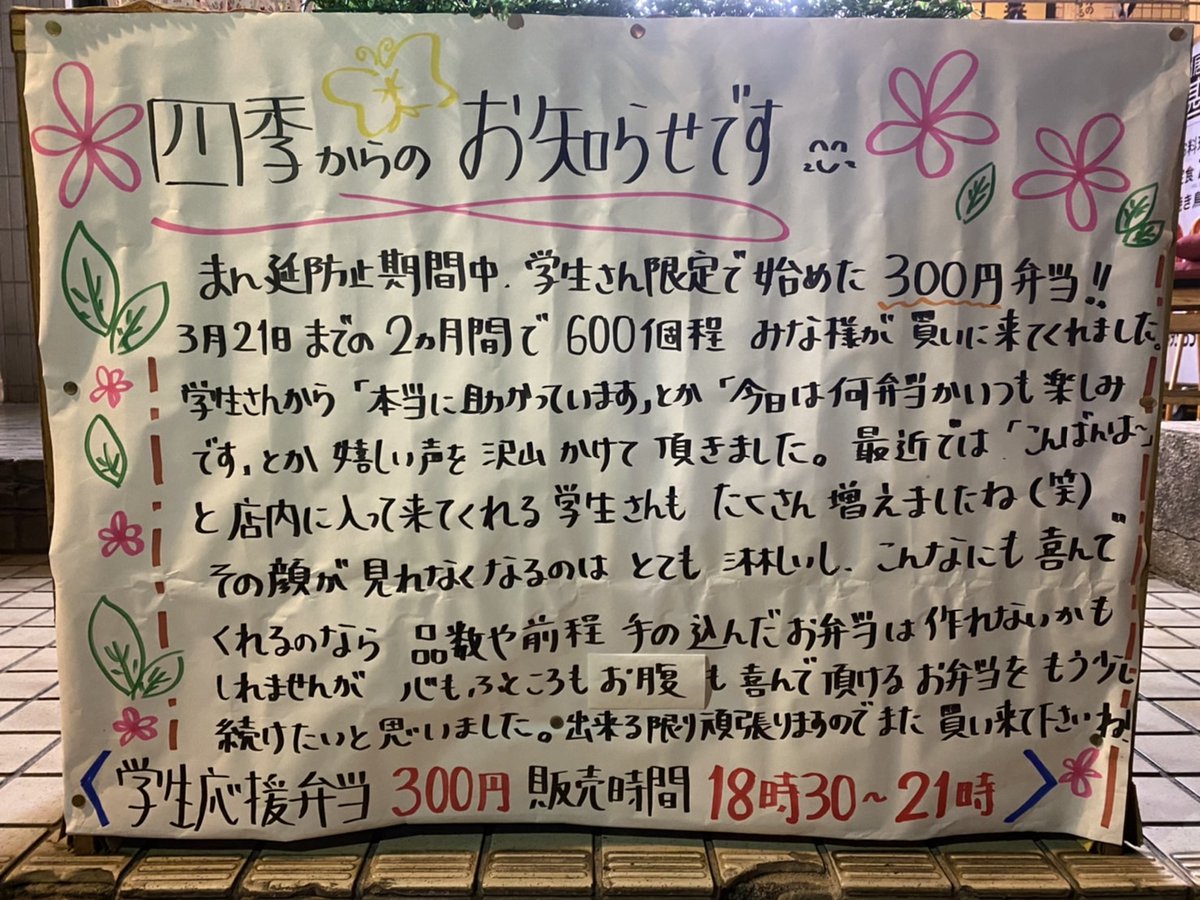 四季からのお知らせです
まん延防止期間中、学生さん限定で始めた300円弁当!!
3月21日までの2ヵ月間で600個程 みな様が買いに来てくれました。
学生さんから「本当に助かっています」とか「今日は何弁当かいつも楽しみ
です」とか嬉しい声を沢山かけて頂きました。最近では「こんばんは〜」
と店内に入って来てくれる学生さんもたくさん増えましたね(笑)
その顔が見れなくなるのはとても淋しいし、こんなにも喜んで
くれるのなら 品数や前程手の込んだお弁当は作れないかも
しれませんが 心も,ふところもお腹も喜んで頂けるお弁当をもう少し
続けたいと思いました。出来る限り頑張りますのでまた買い来て下さいね!
〈学生応援弁当 300円 販売時間 18時30~21時〉